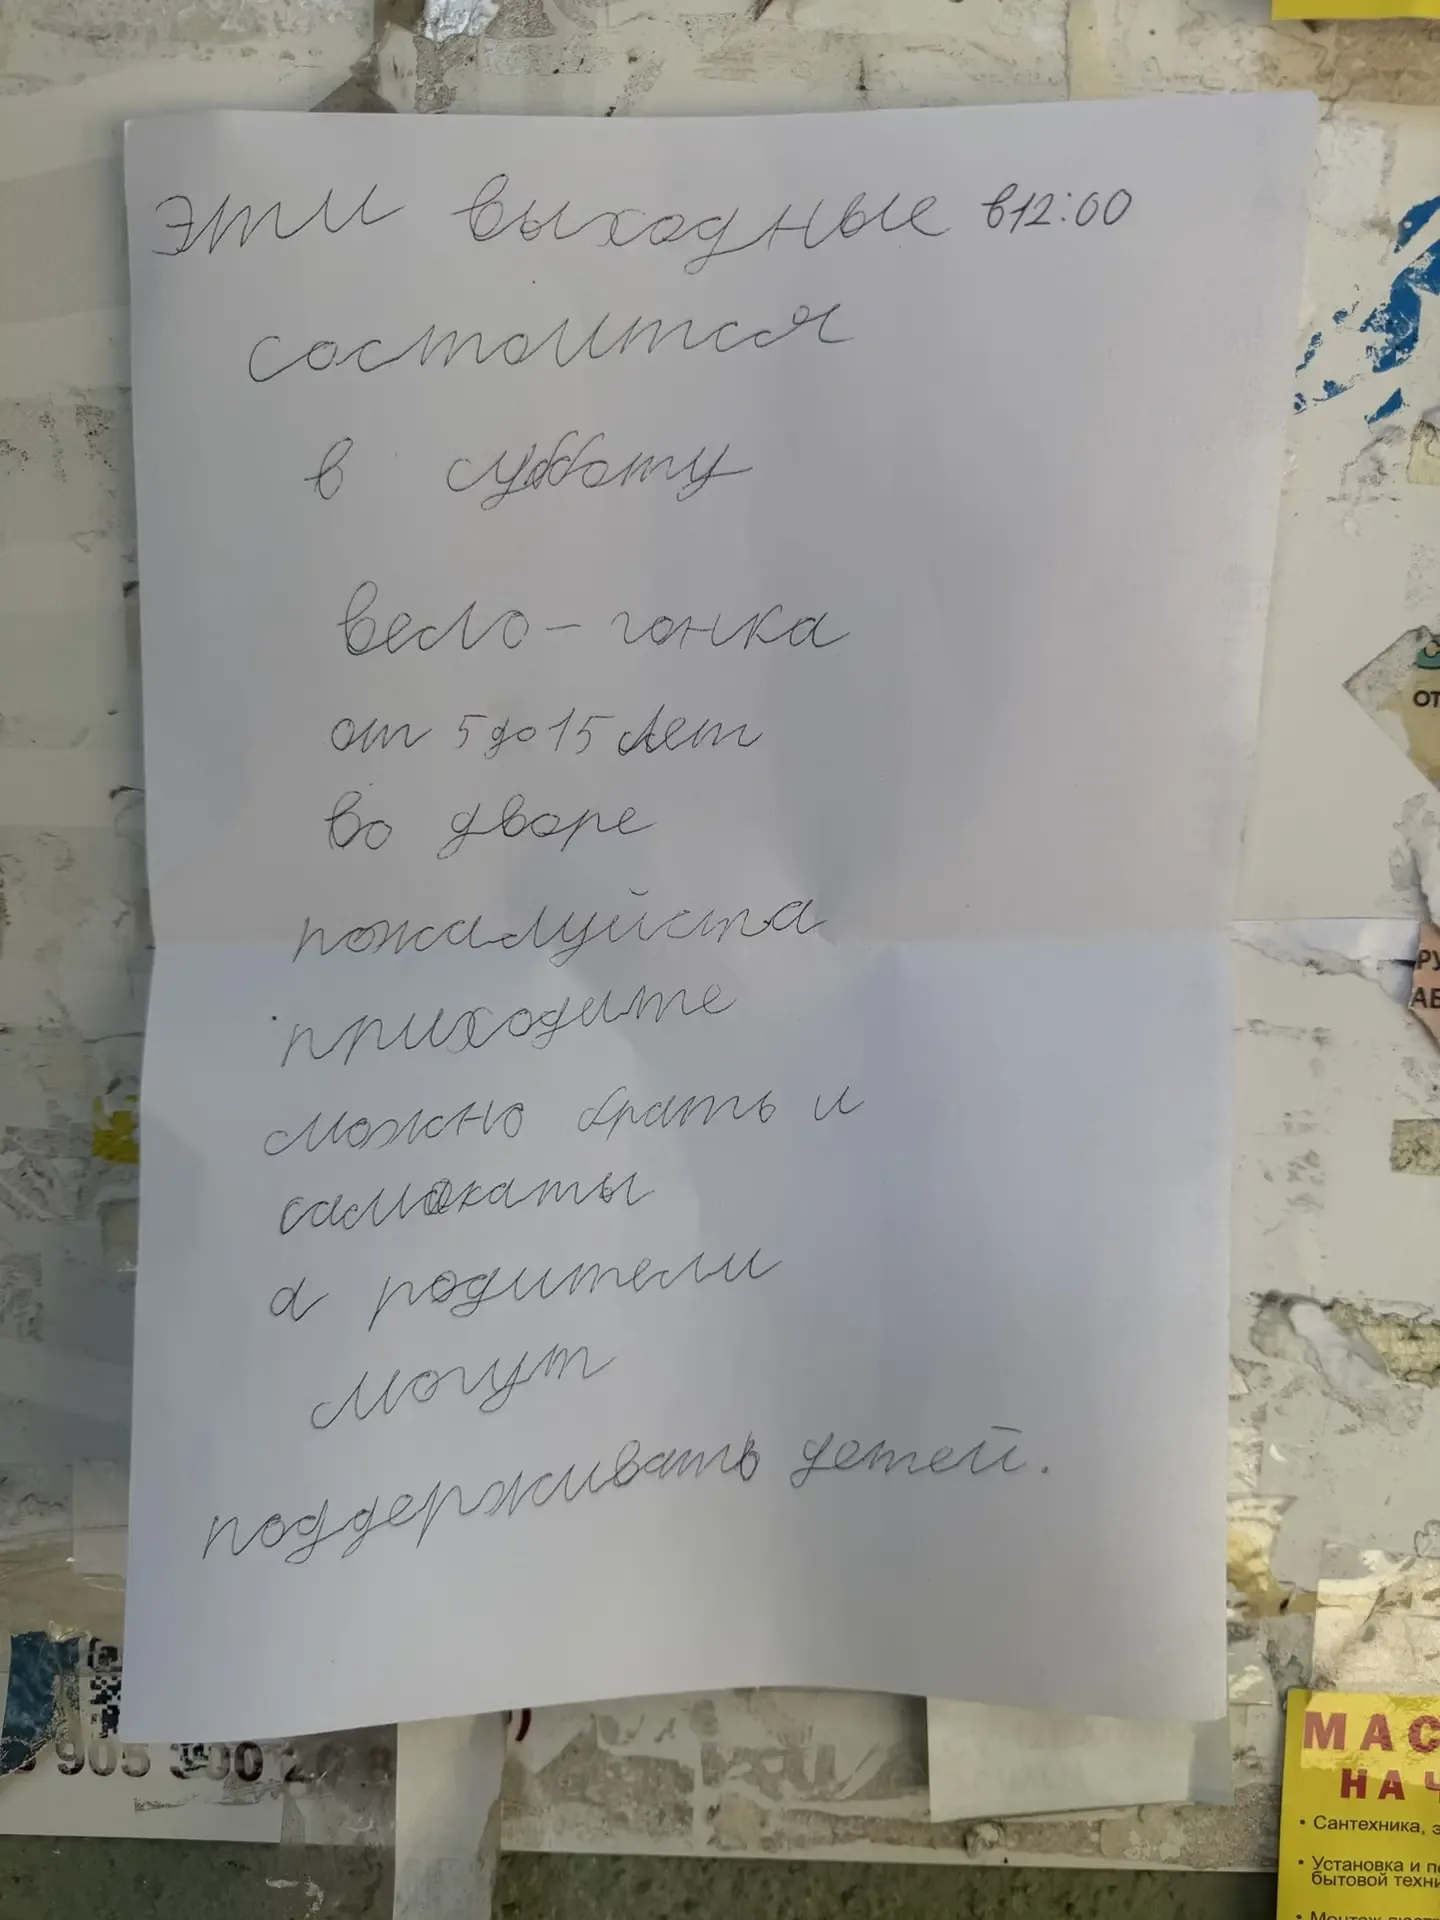 эти выходные в12:00
состоится
в субботу
вело-гонка
от 5 до 15 лет
во дворе
пожалуйста
приходите
можно брать и
самокаты
а родители
могут
поддерживать детей.
ОТ
РУ
АВ
905 300 2
МАС
НА Ч
• Сантехника, э
• Установка и п
бытовой техни